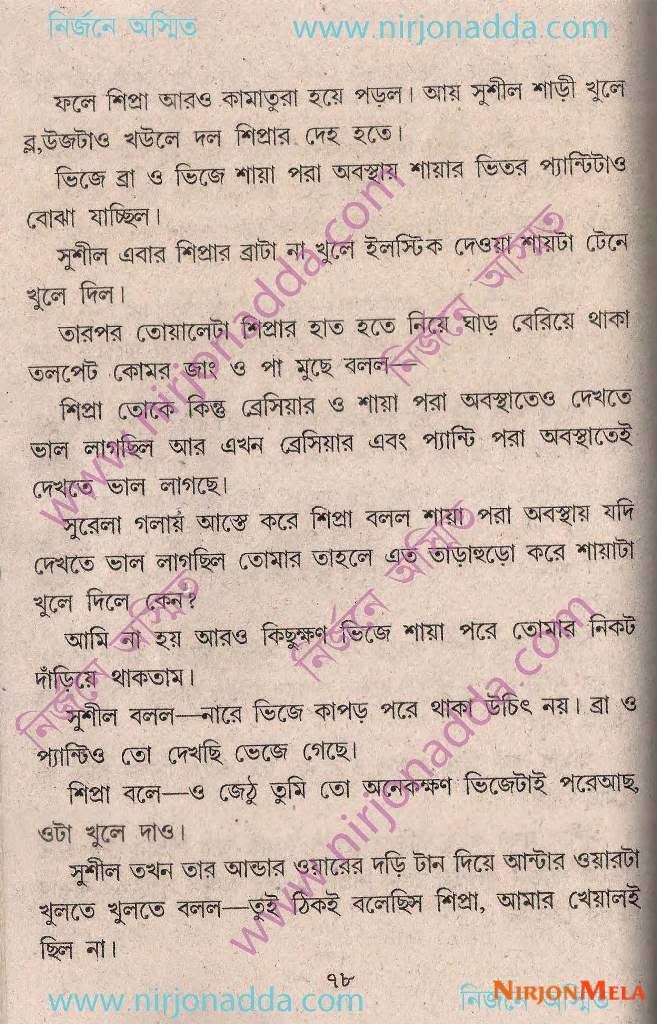 নির্জনে অস্মিত www.nirjonadda.com
ফলে শিপ্রা আরও কামাতুরা হয়ে পড়ল। আয় সুশীল শাড়ী খুলে
ব্ল,উজটাও খউলে দল শিপ্রার দেহ হতে।
ভিজে ব্রা ও ভিজে শায়া পরা অবস্থায় শায়ার ভিতর প্যান্টিটাও
বোঝা যাচ্ছিল।
সুশীল এবার শিপ্রার ব্রাটা না খুলে ইলস্টিক দেওয়া শায়টা টেনে
খুলে দিল।
তারপর তোয়ালেটা শিপ্রার হাত হতে নিয়ে ঘাড় বেরিয়ে থাকা
তলপেট কোমর জাং ও পা মুছে বলল—
শিপ্রা তোকে কিন্তু ব্রেসিয়ার ও শায়া পরা অবস্থাতেও দেখতে
ভাল লাগছিল আর এখন ব্রেসিয়ার এবং প্যান্টি পরা অবস্থাতেই
দেখতে ভাল লাগছে।
সুরেলা গলায় আস্তে করে শিপ্রা বলল শায়া পরা অবস্থায় যদি
দেখতে ভাল লাগছিল তোমার তাহলে এত তাড়াহুড়ো করে শায়াটা
খুলে দিলে কেন?
আমি না হয় আরও কিছুক্ষণ ভিজে শায়া পরে তোমার নিকট
দাঁড়িয়ে থাকতাম।
সুশীল বলল—নারে ভিজে কাপড় পরে থাকা উচিৎ নয়। ব্রা ও
প্যান্টিও তো দেখছি ভেজে গেছে।
শিপ্রা বলে—ও জেঠু তুমি তো অনেকক্ষণ ভিজেটাই পরেআছ,
ওটা খুলে দাও।
সুশীল তখন তার আন্ডার ওয়ারের দড়ি টান দিয়ে আন্টার ওয়ারটা
খুলতে খুলতে বলল—তুই ঠিকই বলেছিস শিপ্রা, আমার খেয়ালই
ছিল না।
৭৮
www.nirjonadda.com নির্জনে অস্মিত
NIRJONMELA
www.nirjonadda.com
নির্জনে অস্মিত
নির্জনে অস্মিত
নির্জনে অস্মিত
www.nirjonadda.com